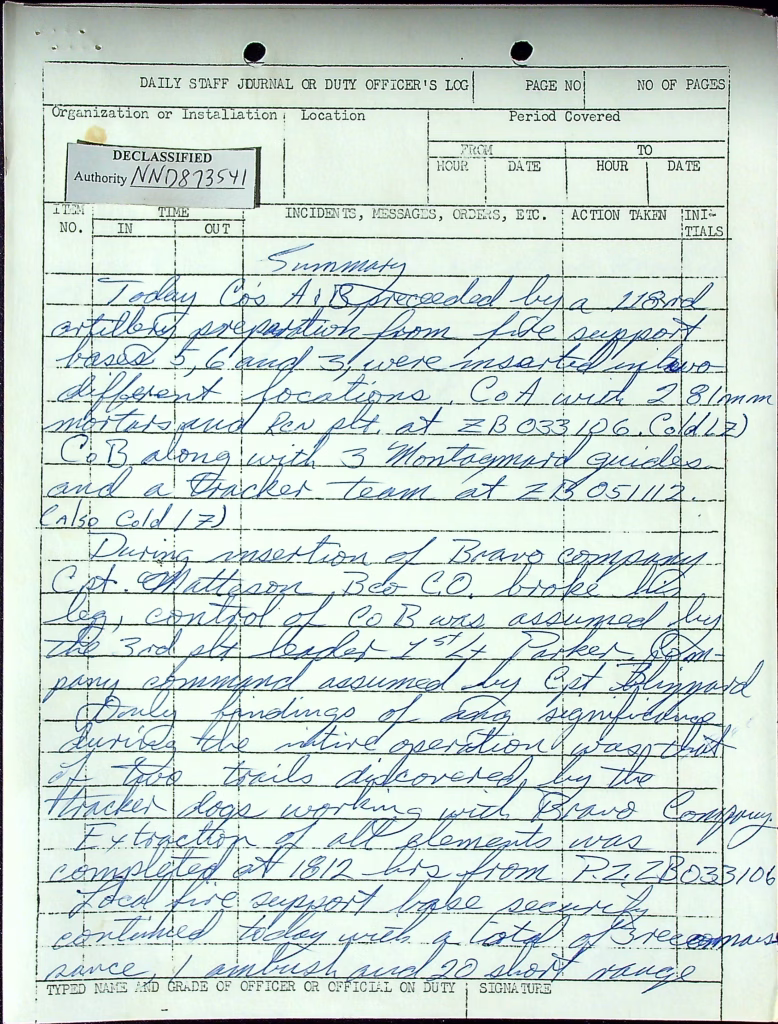 DAILY STAFF JOURNAL OR DUTY OFFICER'S LOG PAGE NO NO OF PAGES
Organization or Installation Location Period Covered
FROM TO
HOUR DATE HOUR DATE
DECLASSIFIED
Authority NND873541
ITEM NO. TIME IN OUT INCIDENTS, MESSAGES, ORDERS, ETC. ACTION TAKEN INI-TIALS
Summary
Today Co's A & B preceeded by a 118rd
artillery prepartion from fire support
bases 5, 6 and 3, were inserted in two
different locations. Co A with 2 81mm
mortars and Rcn plt. at ZB033106. (Cold LZ)
Co B along with 3 Montagnard guides
and a tracker team at ZB051112.
(Also Cold LZ)
During insertion of Bravo company
Cpt. Matteson B co C.O. broke his
leg, control of Co B was assumed by
the 3rd plt leader 1st Lt Parker. Com-
pany command assumed by Cpt
Only findings of any significance
during the intire operation was that
of two trails discovered by the
tracker dogs working with Bravo Company.
Extraction of all elements was
completed at 1812 hrs from P.Z. ZB033106
Local fire support base security
continued today with a total of 3 reconnais
sance, 1 ambush and 20 short range
TYPED NAME AND GRADE OF OFFICER OR OFFICIAL ON DUTY SIGNATURE